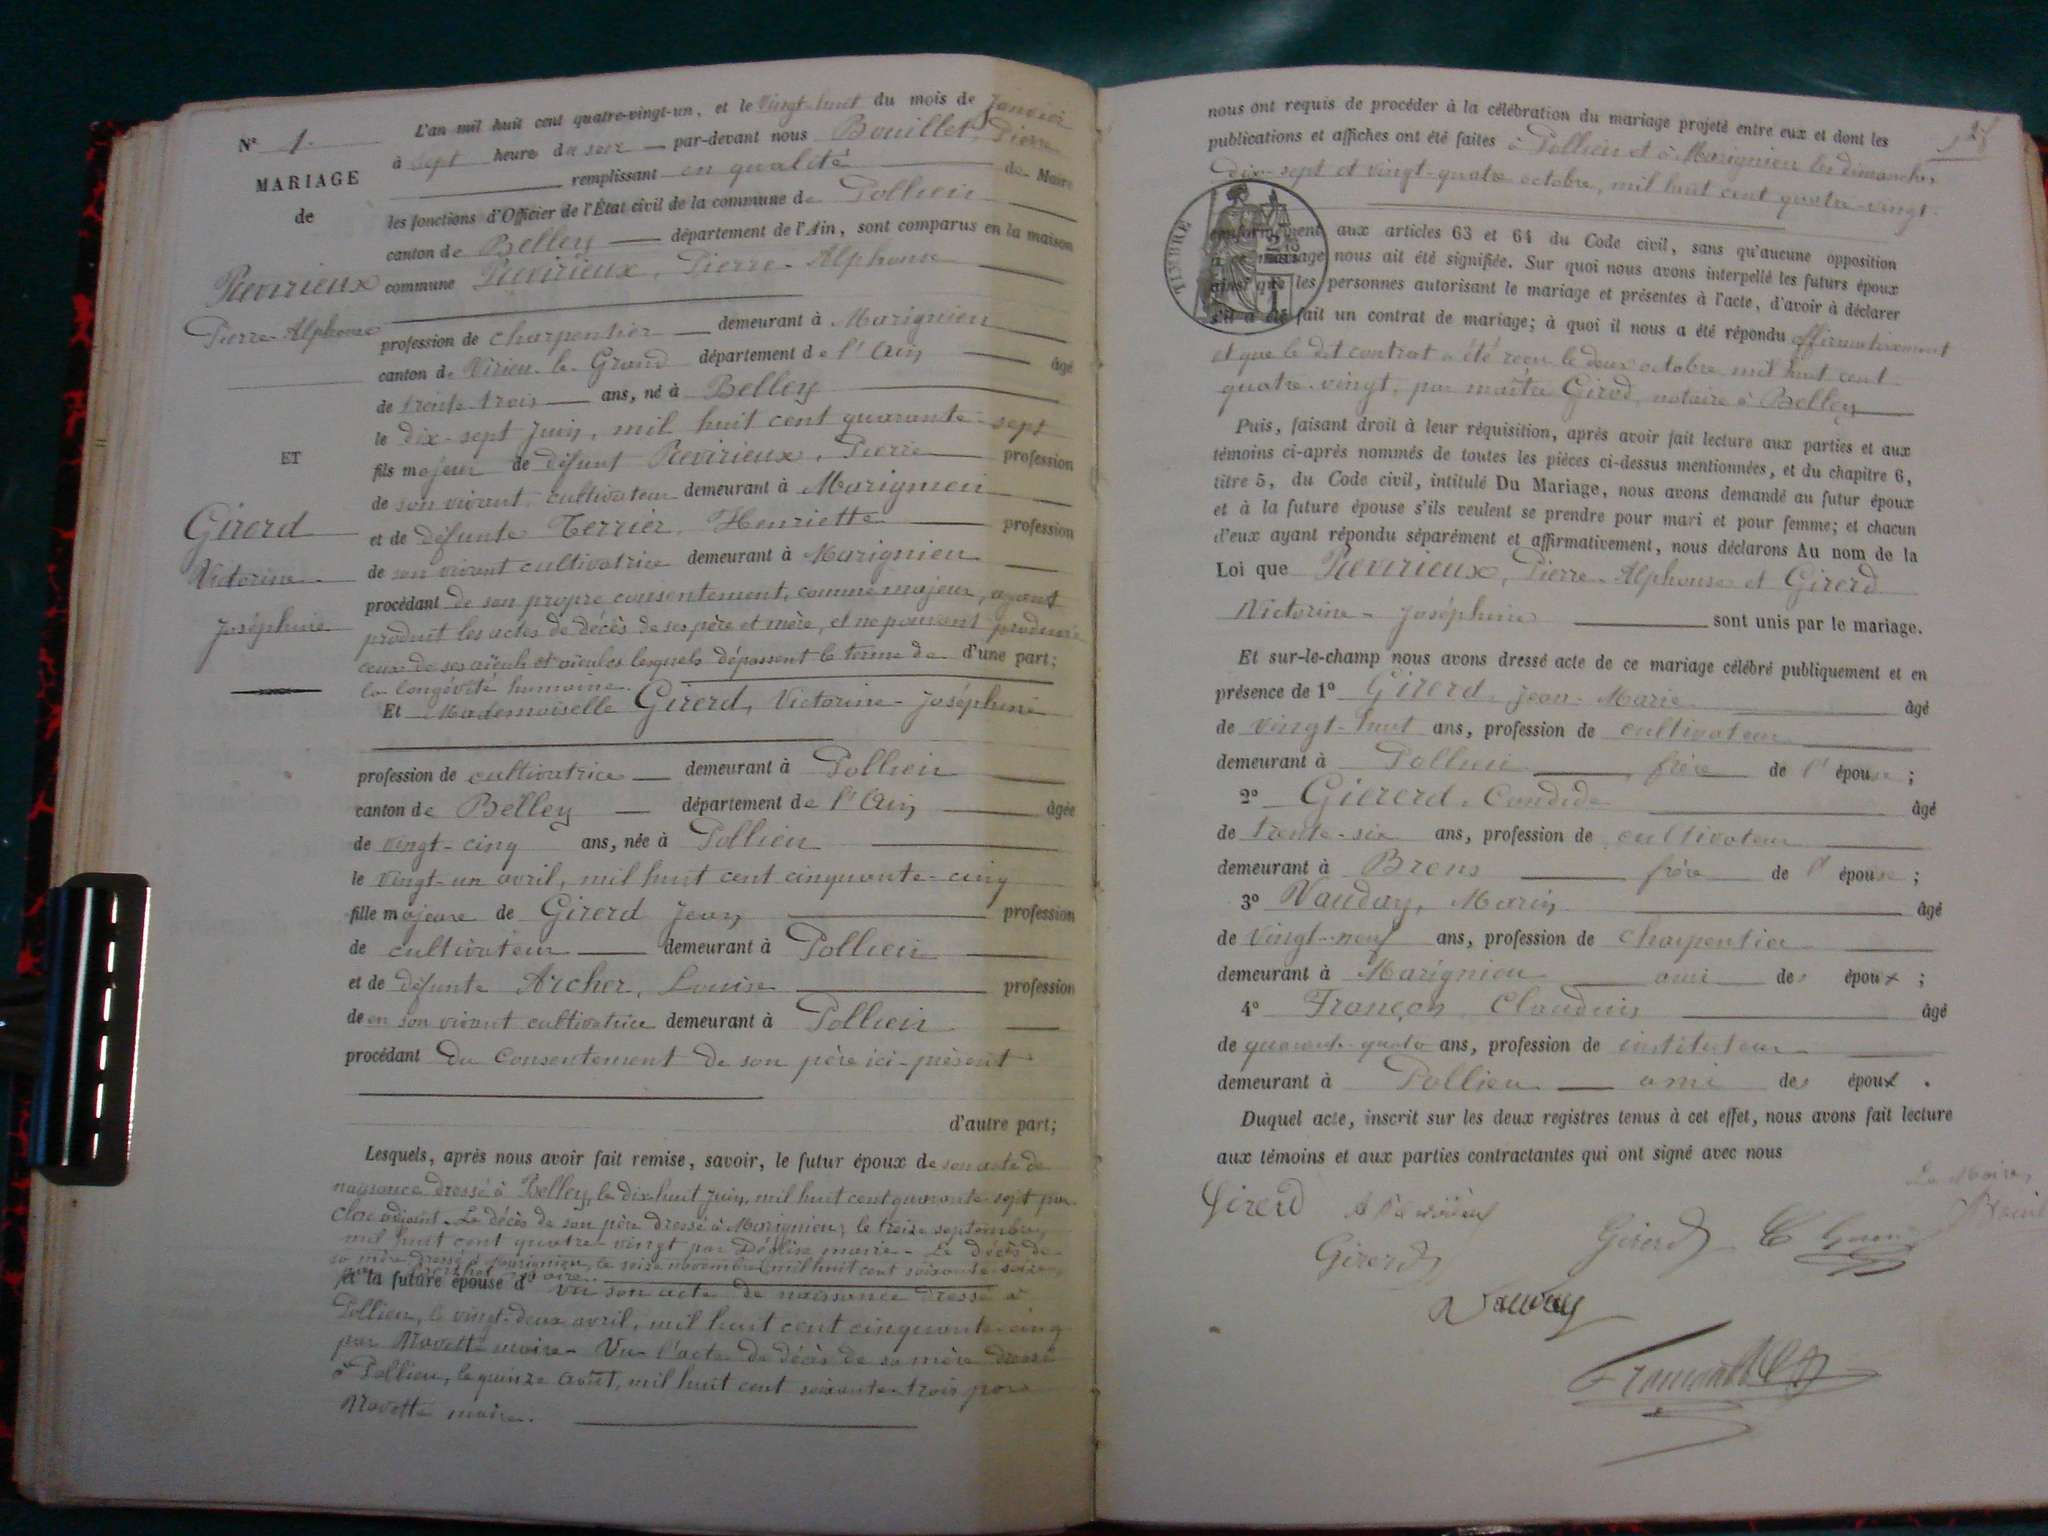 N° 1.
MARIAGE
de
Revirieux
Pierre-Alphonse
ET
Girerd
Victorine
Joséphine
L'an mil huit cent quatre-vingt-un, et le vingt-huit du mois de Janvier
à sept heure du soir par-devant nous Bouillet, Pierre
remplissant en qualité de Maire
les fonctions d'Officier de l'État civil de la commune de Pollieu
canton de Belley département de l'Ain, sont comparus en la maison
commune Revirieux, Pierre-Alphonse
profession de charpentier demeurant à Marignieu
canton de Virieu-le-Grand département de l'Ain âgé
de trente trois ans, né à Belley
le dix-sept Juin, mil huit cent quarante-sept
fils majeur de défunt Revirieux, Pierre profession
de son vivant cultivateur demeurant à Marignieu
et de défunte Terrier, Henriette profession
de son vivant cultivatrice demeurant à Marignieu
procédant de son propre consentement, comme majeur, ayant
produit les actes de décès de ses père et mère, et ne pouvant produire
ceux de ses aïeuls et aïeules lesquels dépassent le terme de d'une part;
la longévité humaine.
Et Mademoiselle Girerd, Victorine-Joséphine
profession de cultivatrice demeurant à Pollieu
canton de Belley département de l'Ain âgée
de vingt-cinq ans, née à Pollieu
le vingt-un avril, mil huit cent cinquante-cinq
fille majeure de Girerd Jean profession
de cultivateur demeurant à Pollieu
et de défunte Archer, Louise profession
de en son vivant cultivatrice demeurant à Pollieu
procédant du Consentement de son père ici-présent
d'autre part;
Lesquels, après nous avoir fait remise, savoir, le futur époux de son acte de
naissance dressé à Belley, le dix-huit Juin, mil huit cent quarante-sept par
adjoint. Le décès de son père dressé à Marignieu, le treize septembre
mil huit cent quatre-vingt par maire. Le décès de
sa mère dressé à Marignieu, le seize novembre mil huit cent soixante-seize,
maire.
et la future épouse d' Vu son acte de naissance dressé à
Pollieu, le vingt-deux avril, mil huit cent cinquante-cinq
par Navette maire. Vu l'acte de décès de sa mère dressé
à Pollieu, le quinze août, mil huit cent soixante-trois par
Navette maire.
nous ont requis de procéder à la célébration du mariage projeté entre eux et dont les
publications et affiches ont été faites à Pollieu et à Marignieu les dimanches
dix-sept et vingt-quatre octobre, mil huit cent quatre-vingt.
TIMBRE
conformément aux articles 63 et 64 du Code civil, sans qu'aucune opposition
à ce mariage nous ait été signifiée. Sur quoi nous avons interpellé les futurs époux
ainsi que les personnes autorisant le mariage et présentes à l'acte, d'avoir à déclarer
s'il a été fait un contrat de mariage; à quoi il nous a été répondu affirmativement
et que le dit contrat a été reçu le deux octobre mil huit cent
quatre-vingt, par maître Girod, notaire à Belley
Puis, faisant droit à leur réquisition, après avoir fait lecture aux parties et aux
témoins ci-après nommés de toutes les pièces ci-dessus mentionnées, et du chapitre 6,
titre 5, du Code civil, intitulé Du Mariage, nous avons demandé au futur époux
et à la future épouse s'ils veulent se prendre pour mari et pour femme; et chacun
d'eux ayant répondu séparément et affirmativement, nous déclarons Au nom de la
Loi que Revirieux, Pierre-Alphonse et Girerd
Victorine-Joséphine sont unis par le mariage.
Et sur-le-champ nous avons dressé acte de ce mariage célébré publiquement et en
présence de 1° Girerd Jean-Marie âgé
de vingt-huit ans, profession de cultivateur
demeurant à Pollieu frère de l'épouse;
2° Giererd, Candide âgé
de trente-six ans, profession de cultivateur
demeurant à Brens frère de l'épouse;
3° Vauday, Marin âgé
de vingt-neuf ans, profession de charpentier
demeurant à Marignieu ami des époux;
4° Françon, Claudius âgé
de quarante-quatre ans, profession de instituteur
demeurant à Pollieu ami des époux.
Duquel acte, inscrit sur les deux registres tenus à cet effet, nous avons fait lecture
aux témoins et aux parties contractantes qui ont signé avec nous
Le Maire,
Girerd
Girerd
Girerd